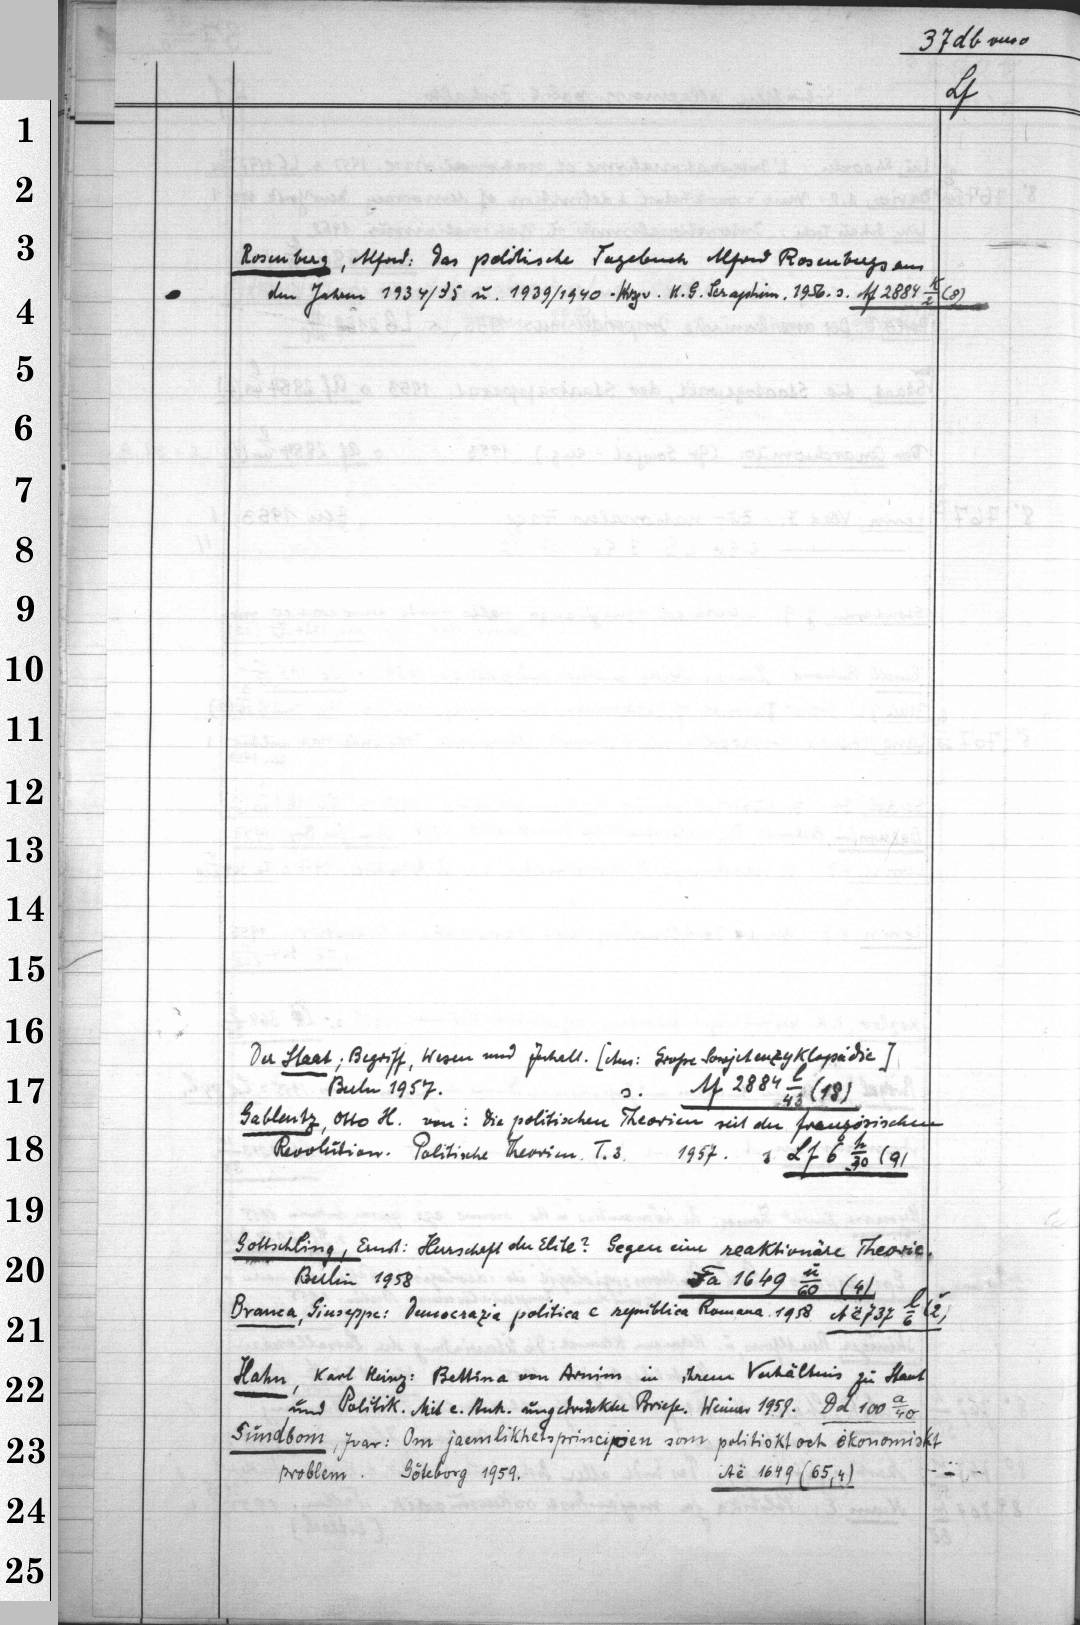 37db verso
Lf
1
2
3
Rosenberg, Alfred: Das politische Tagebuch Alfred Rosenbergs aus
den Jahren 1934/35 u. 1939/1940. Hrzgv. H.G. Seraphim. 1956. s. Af 2884 k/2 (8)
4
5
6
7
8
9
10
11
12
13
14
15
16
Der Staat; Begriff, Wesen und Inhalt. [Aus: Grosse Sowjetenzyklopädie]
17
Berlin 1957. s. Af 2884 l/43 (18)
Gablentz, Otto H. von: Die politischen Theorien seit der französischen
18
Revolution. Politische Theorien. T.3. 1957. s Lf 6 h/30 (9)
19
Gottschling, Ernst: Herrschaft der Elite? Gegen eine reaktionäre Theorie.
20
Berlin 1958 Fa 1649 ü/60 (4)
Branca, Giuseppe: Democrazia politica e repubblica Romana. 1958 Aë 737 l/6 (2)
21
22
Hahn, Karl Heinz: Bettina von Arnim in ihrem Verhältnis zu Staat
und Politik. Mit e. Anh. ungedruckter Briefe. Weimar 1959. Dd 100 a/40
23
Sundbom, Ivar: Om jaemlikhetsprincipien som politiskt och ekonomiskt
problem. Göteborg 1959. Aë 1649 (65,4)
24
25